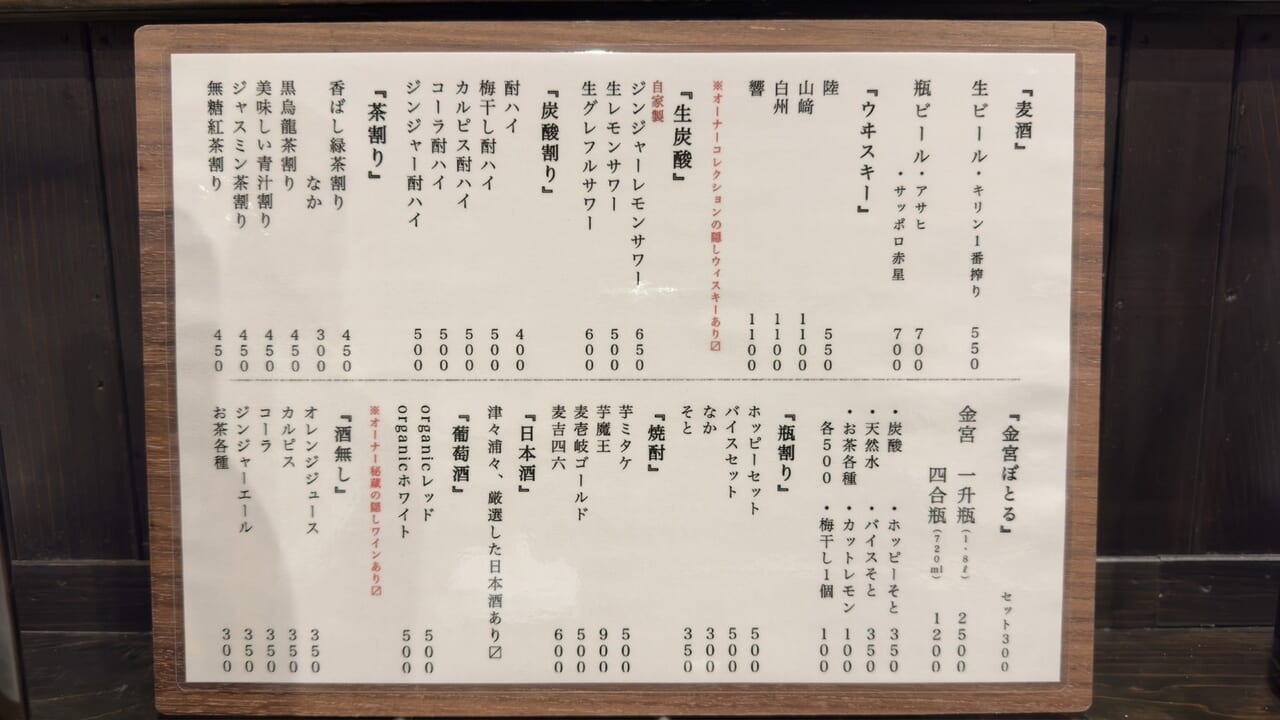 『麦酒』
生ビール・キリン1番搾り 550
瓶ビール・アサヒ 700
・サッポロ赤星 700
『ウヰスキー』
陸 550
山﨑 1100
白州 1100
響 1100
※オーナーコレクションの隠しウィスキーあり〼
『生炭酸』
自家製
ジンジャーレモンサワー 650
生レモンサワー 500
生グレフルサワー 600
『炭酸割り』
酎ハイ 400
梅干し酎ハイ 500
カルピス酎ハイ 500
コーラ酎ハイ 500
ジンジャー酎ハイ 500
『茶割り』
香ばし緑茶割り 450
なか 300
黒烏龍茶割り 450
美味しい青汁割り 450
ジャスミン茶割り 450
無糖紅茶割り 450
『金宮ぼとる』 セット300
金宮 一升瓶(1.8ℓ) 2500
四合瓶(720ml) 1200
・炭酸 ・ホッピーそと 350
・天然水 ・バイスそと 350
・お茶各種 ・カットレモン 100
各500 ・梅干し1個 100
『瓶割り』
ホッピーセット 500
バイスセット 500
なか 300
そと 350
『焼酎』
芋ミタケ 500
芋魔王 900
麦壱岐ゴールド 500
麦吉四六 600
『日本酒』
津々浦々、厳選した日本酒あり〼
『葡萄酒』
organicレッド 500
organicホワイト 500
※オーナー秘蔵の隠しワインあり〼
『酒無し』
オレンジジュース 350
カルピス 350
コーラ 350
ジンジャーエール 350
お茶各種 300